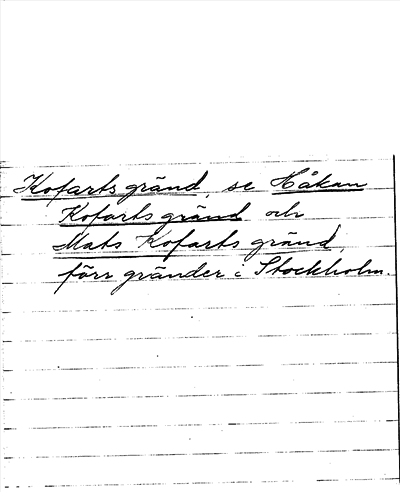 Kofartsgränd, se Håkan
Kofarts gränd och
Mats Kofarts gränd,
förr gränder i Stockholm.